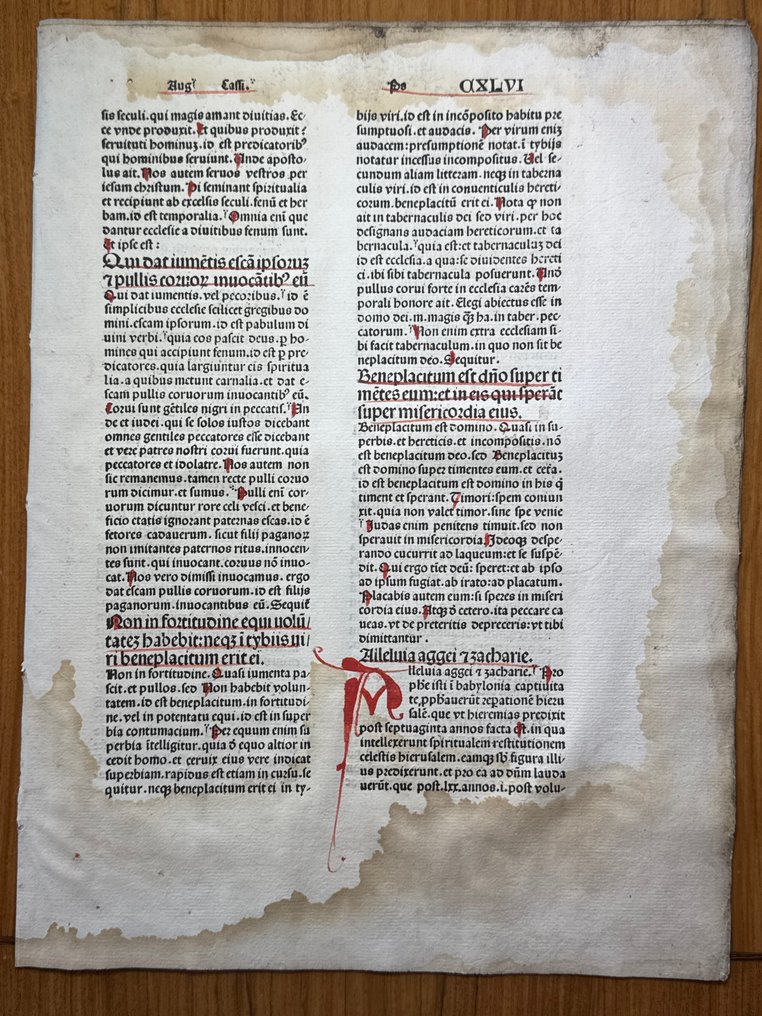 Augꝰ Cassi.
Ps CXLVI
sis seculi. qui magis amant diuitias. Ec-
ce vnde produxit. Et quibus produxit?
seruituti hominuʒ. id est predicatoribꝰ
qui hominibus seruiunt. Unde aposto-
lus ait. Nos autem seruos vestros per
iesum christum. Di seminant spiritualia
et recipiunt ab excelsis seculi. fenū et her
bam. id est temporalia. Omnia enī que
dantur ecclesie a diuitibus fenum sunt.
Et ipse est:
Qui dat iumētis escā ipsoruʒ
⁊ pullis coruoꝝ inuocātibꝰ eū
Qui dat iumentis. vel pecoribus. id ē
simplicibus ecclesie scilicet gregibus do
mini. escam ipsorum. id est pabulum di
uini verbi. quia eos pascit deus. ꝑ ho
mines qui accipiunt fenum. id est ꝑ pre
dicatores. quia largiuntur eis spiritua
lia. a quibus metunt carnalia. et dat e-
scam pullis coruorum inuocantibꝰ eū.
Corui sunt gētiles nigri in peccatis. Un
de et iudei. qui se solos iustos dicebant
omnes gentiles peccatores esse dicebant
et vere patres nostri corui fuerunt. quia
peccatores et idolatre. Nos autem non
sic remanemus. tamen recte pulli coruo
rum dicimur. et sumus. Pulli enī cor-
uorum dicuntur rore celi vesci. et bene-
ficio etatis ignorant paternas escas. id ē
fetores cadauerum. sicut filij paganoꝝ
non imitantes paternos ritus. innocen
tes sunt. qui inuocant. coruus nō inuo-
cat. Nos vero dimissi inuocamus. ergo
dat escam pullis coruorum. id est filijs
paganorum. inuocantibus eū. Sequit
Non in fortitudine equi volū
tateʒ habebit: neqʒ ī tybijs vi/
ri beneplacitum erit ei.
Non in fortitudine. Quasi iumenta pa-
scit. et pullos. sed Non habebit volun-
tatem. id est beneplacitum. in fortitudi-
ne. vel in potentatu equi. id est in super
bia contumacium. Per equum enim su
perbia ītelligitur. quia ꝙ equo altior in
cedit homo. et ceruix eius vere indicat
superbiam. rapidus est etiam in cursu. se
quitur. neqʒ beneplacitum erit ei in ty-
bijs viri. id est in incōposito habitu pre
sumptuosi. et audacis. Per virum enīʒ
audacem: presumptionē notat. ī tybijs
notatur incessus incompositus. Uel se-
cundum aliam litteram. neqʒ in taberna
culis viri. id est in conuenticulis hereti-
corum. beneplacitū erit ei. Nota ꝙ non
ait in tabernaculis dei sed viri. per hoc
designans audaciam hereticorum. et ta
bernacula. quia est: et tabernaculuʒ dei
id est ecclesia. a qua: se diuidentes hereti
ci. ibi sibi tabernacula posuerunt. Und
pullus corui forte in ecclesia carēs tem
porali honore ait. Elegi abiectus esse in
domo dei. m. magis qʒ̄ ha. in taber. pec-
catorum. Non enim extra ecclesiam si-
bi facit tabernaculum. in quo non sit be
neplacitum deo. Sequitur.
Beneplacitum est dn̄o super ti
mētes eum: et in eis qui sperāt
super misericordia eius.
Beneplacitum est domino. Quasi in su-
perbis. et hereticis. et incompositis. nō
est beneplacitum deo. sed Beneplacituʒ
est domino super timentes eum. et cetera.
id est beneplacitum est domino in his q̄
timent et sperant. Timori: spem coniun
xit. quia non valet timor. sine spe venie
Judas enim penitens timuit. sed non
sperauit in misericordia. Ideoqʒ despe-
rando cucurrit ad laqueum: et se suspē-
dit. Qui ergo tiet deū: speret: et ab ipso
ad ipsum fugiat. ab irato: ad placatum.
Placabis autem eum: si speres in miseri
cordia eius. Atqʒ ꝙ cetero. ita peccare ca
ueas. vt de preteritis depreceris: vt tibi
dimittantur.
Alleluia aggei ⁊ zacharie.
Alleluia aggei ⁊ zacharie. Pro
phe isti ī babylonia captiuita
te. ꝓphauerūt reꝑationē hieru
salē. que vt hieremias predixit
post septuaginta annos facta est. in qua
intellexerunt spiritualem restitutionem
celestis hierusalem. eamqʒ sb̄ figura illi-
us predixerunt. et pro ea ad dn̄m lauda
uerūt. que post. lxx. annos. i. post volu-